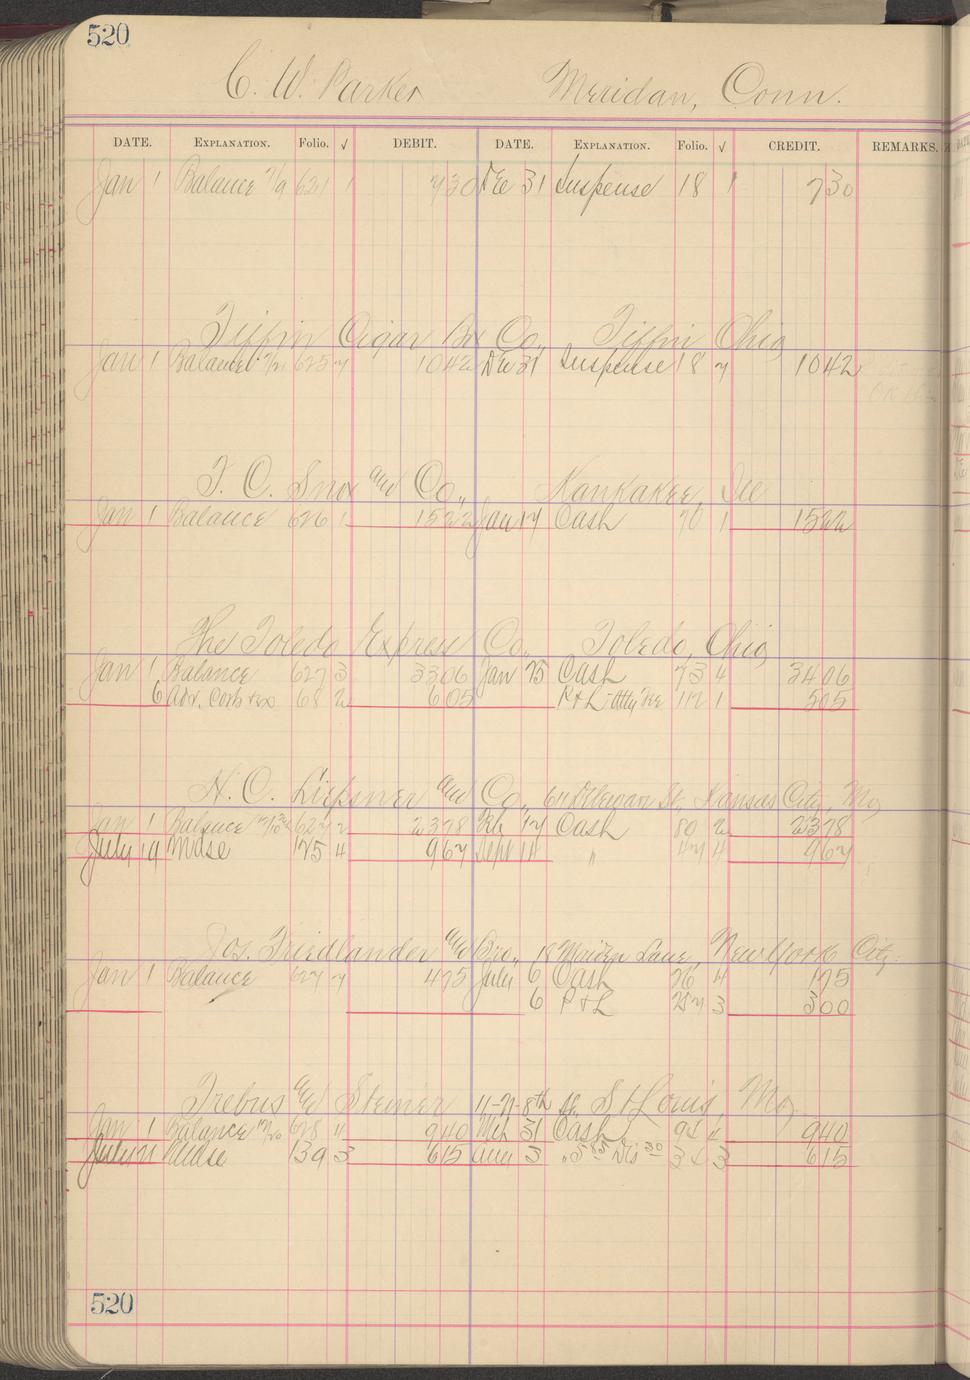 520
C. W. Parker Meridan, Conn.
DATE. EXPLANATION. Folio. √ DEBIT. DATE. EXPLANATION. Folio. √ CREDIT. REMARKS.
Jan 1 Balance 621 1 730 Dec 31 Suspense 18 1 730
Tiffin Cigar Box Co., Tiffin Ohio
Jan 1 Balance 625 7 1042 Dec 31 Suspense 18 7 1042
T. C. and Co., Kankakee, Ill
Jan 1 Balance 626 1 1522 Jan 17 Cash 70 1 1522
The Toledo Express Co., Toledo, Ohio
Jan 1 Balance 627 3 3306 Jan 25 Cash 73 4 3406
6 Adv. 68 2 605 P & L Atty Fee 112 1 505
H. C. and Co., St., Kansas City, Mo
Jan 1 Balance 627 2 2378 Feb 17 Cash 80 2 2378
July 19 Mdse 125 4 967 Sept 11 " 4 967
Jos. Friedlander and Bro., 18 Maiden Lane, New York City.
Jan 1 Balance 627 7 475 July 6 Cash 26 4 175
6 P & L 257 3 300
Trebus and Steiner 11-N-8th St. St Louis, Mo.
Jan 1 Balance 628 4 940 Mch 31 Cash 94 4 940
July 21 Mdse 139 3 615 Aug 3 " 5 85 Dis 30 34 3 615
520